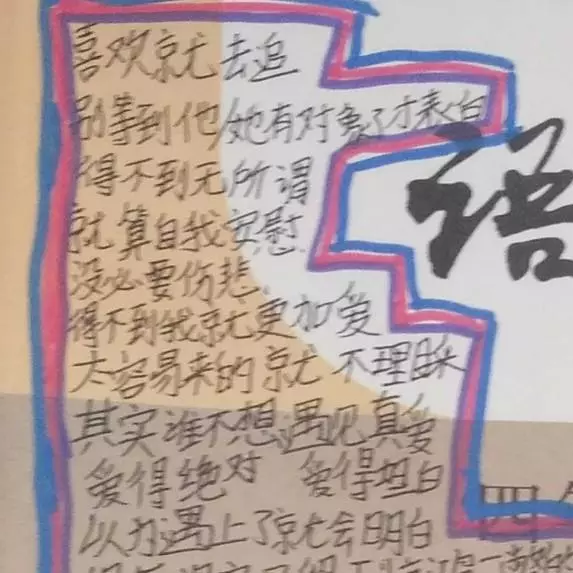 喜欢就去追
别等到他/她有对象了才表白
得不到无所谓
就算自我安慰.
没必要伤悲.
得不到我就更加爱
太容易来的就不理睬
其实谁不想遇见真爱
爱得绝对 爱得坦白
以为遇上了就会明白
语
四